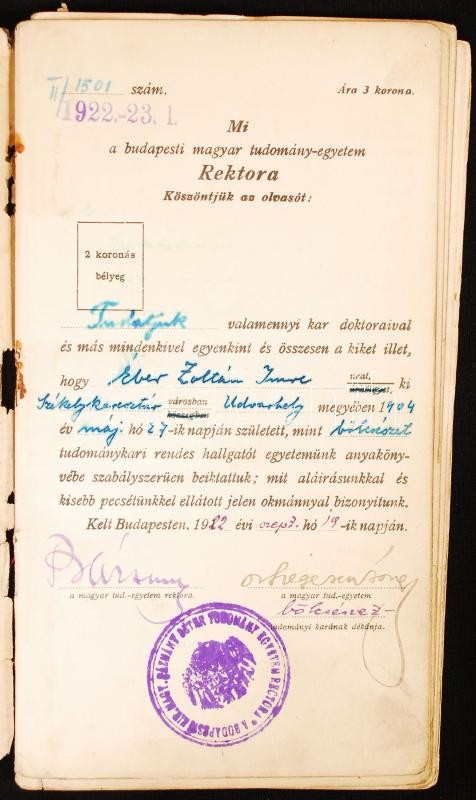 II/1501 szám. Ára 3 korona.
1922.-23. I.
Mi
a budapesti magyar tudomány-egyetem
Rektora
Köszöntjük az olvasót:
2 koronás
bélyeg
Tudatjuk valamennyi kar doktoraival
és más mindenkivel egyenkint és összesen a kiket illet,
hogy Éber Zoltán Imre urat, ki
Székelykeresztúr városban Udvarhely megyében 1904
év máj. hó 27-ik napján született, mint bölcsészet
tudománykari rendes hallgatót egyetemünk anyaköny-
vébe szabályszerüen beiktattuk; mit aláirásunkkal és
kisebb pecsétünkkel ellátott jelen okmánnyal bizonyitunk.
Kelt Budapesten, 1922 évi szept. hó 19-ik napján.
a magyar tud.-egyetem rektora.
a magyar tud.-egyetem
bölcsészet-
tudományi karának dékánja.
A BUDAPESTI KIR. MAGY. PÁZMÁNY PÉTER TUDOMÁNY EGYETEM RECTORA